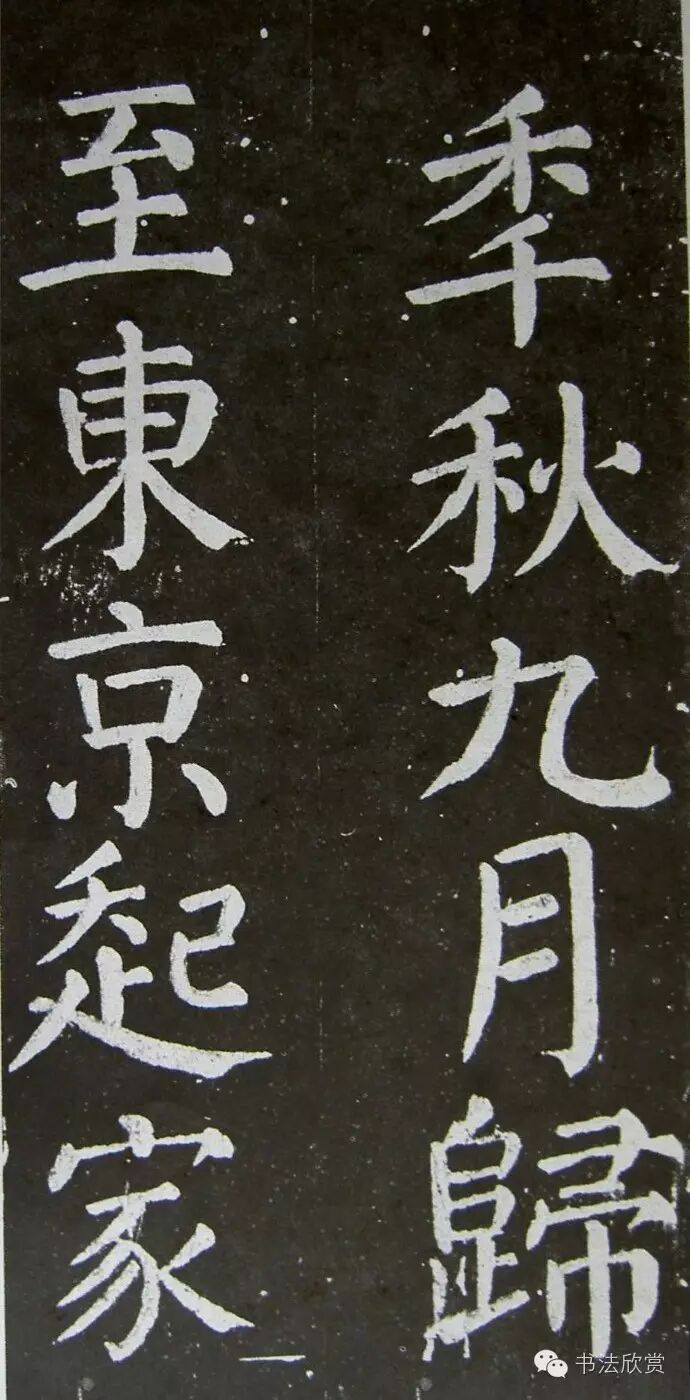 秊秋九月歸
至東京起家
书法欣赏